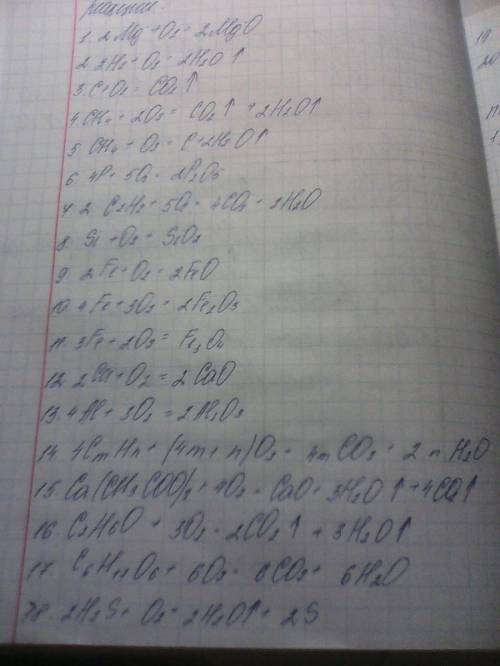 реакции.
1. 2Mg + O₂ = 2MgO
2. 2H₂ + O₂ = 2H₂O ↑
3. C + O₂ = CO₂ ↑
4. CH₄ + 2O₂ = CO₂ ↑ + 2H₂O ↑
5. CH₄ + O₂ = C + 2H₂O ↑
6. 4P + 5O₂ = 2P₂O₅
7. 2 C₂H₂ + 5O₂ = 4CO₂ + 2H₂O
8. Si + O₂ = SiO₂
9. 2Fe + O₂ = 2FeO
10. 4Fe + 3O₂ = 2Fe₂O₃
11. 3Fe + 2O₂ = Fe₃O₄
12. 2Ca + O₂ = 2CaO
13. 4Al + 3O₂ = 2Al₂O₃
14. 4CmHn + (4m + n)O₂ = 4mCO₂ + 2nH₂O
15. Ca(CH₃COO)₂ + 4O₂ = CaO + 3H₂O ↑ + 4CO₂ ↑
16. C₂H₆O + 3O₂ = 2CO₂ ↑ + 3H₂O ↑
17. C₆H₁₂O₆ + 6O₂ = 6CO₂ + 6H₂O
18. 2H₂S + O₂ = 2H₂O ↑ + 2S
19.
20